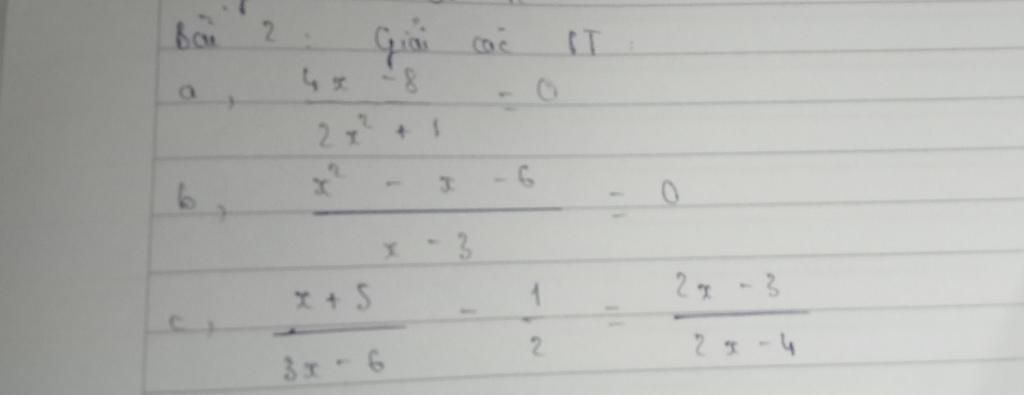 Bài 2 : Giải các PT :
a, (4x - 8)/(2x² + 1) = 0
b, (x² - x - 6)/(x - 3) = 0
c, (x + 5)/(3x - 6) - 1/2 = (2x - 3)/(2x - 4)